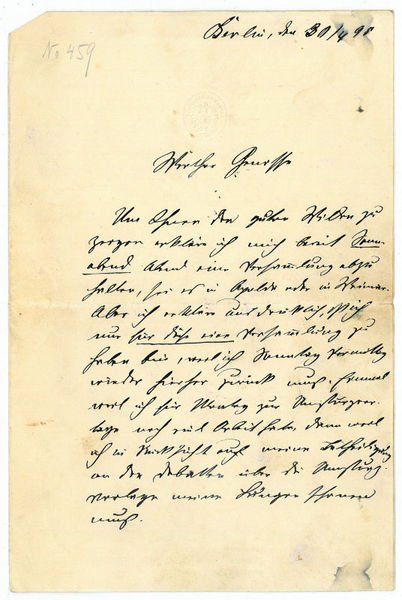 No 459
Berlin, den 30/4 95
Werther Genosse
Um Ihnen den guten Willen zu
zeigen erkläre ich mich bereit Sonn-
abend Abend eine Versammlung abzu
halten, sei es in Apolda oder in Weimar.
Aber ich erkläre ausdrücklich,
nur für diese eine Versammlung zu
haben bin, weil ich Sonntag Vormittag
wieder hierher zurück muß. Einmal
weil ich für Montag zur Umsturzvor-
lage noch viel Arbeit habe, dann weil
ich in Rücksicht auf meine Betheiligung
an den Debatten über die Umsturz-
vorlage meine Lungen schonen
muß.